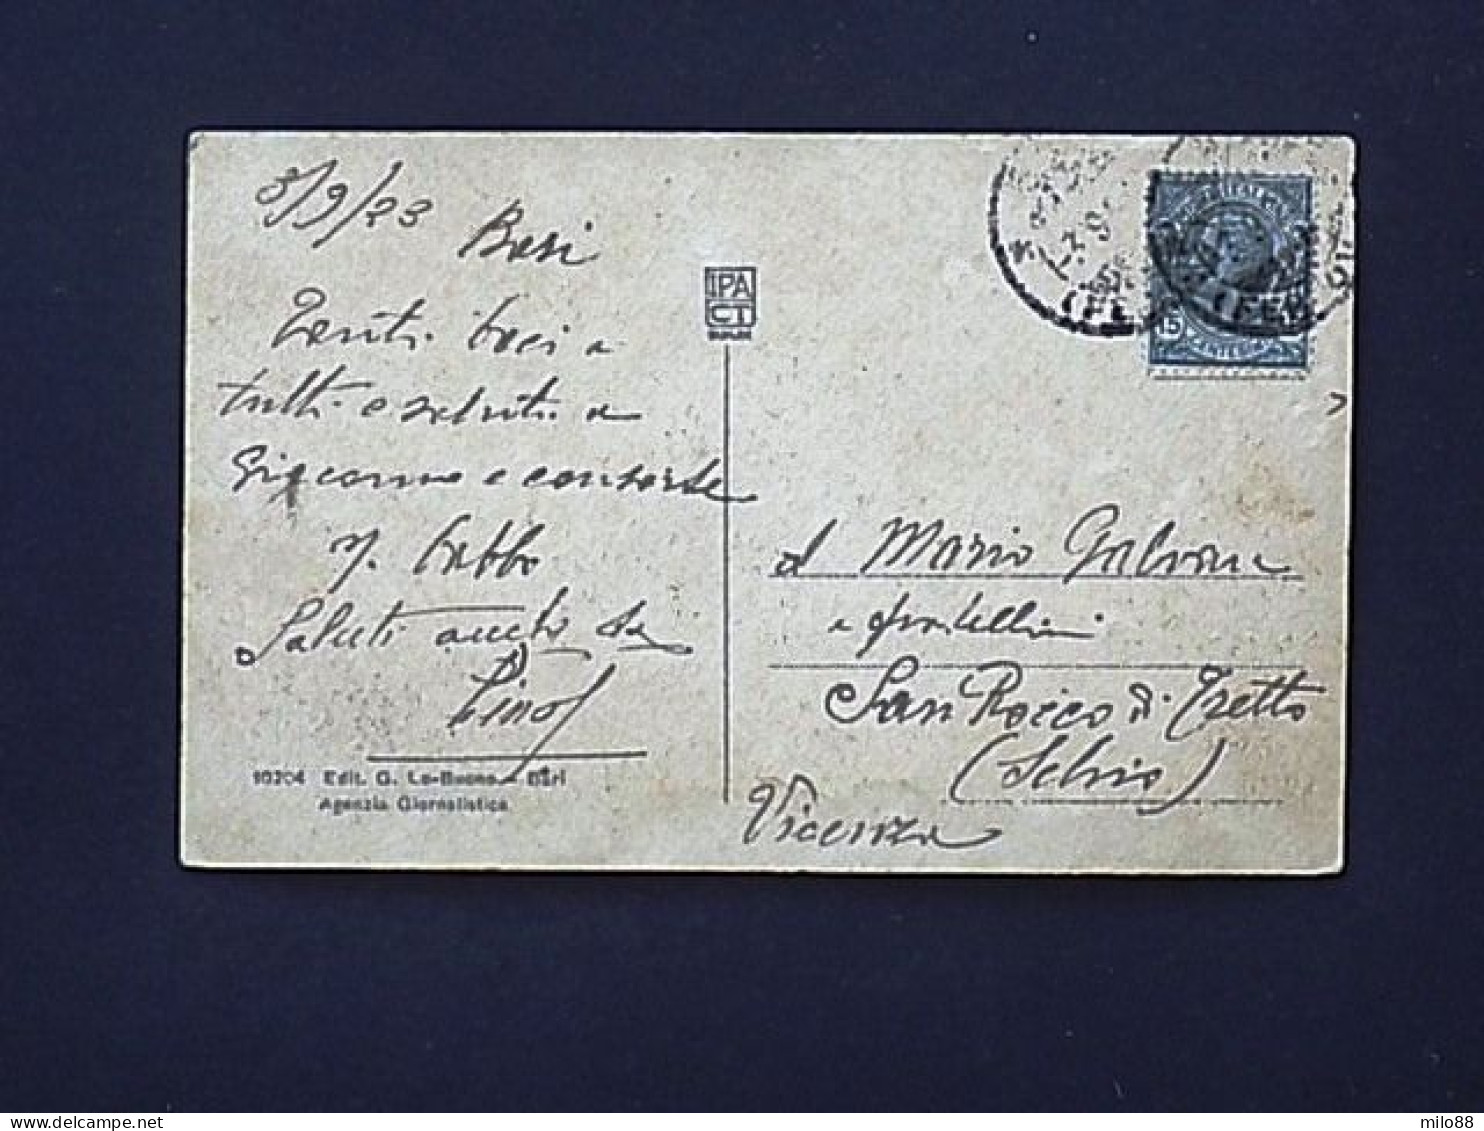 5/9/23 Bari
Tanti baci a
tutti e saluti a
Giacomo e consorte
Babbo
Saluti anche da
Pino
10204 Edit. G. Lo-Buono - Bari
Agenzia Giornalistica
IPA
CT
15
CENTESIMI
(FER
Mario Galvani
e fratellini
San Rocco di Tretto
(Schio)
Vicenza
milo88